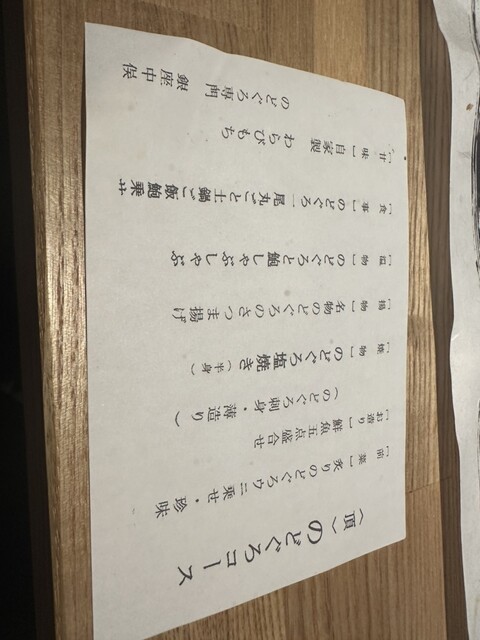 〈頂〉のどぐろコース
［前菜］炙りのどぐろウニ乗せ・珍味
［お造り］鮮魚五点盛合せ
（のどぐろ刺身・薄造り）
［焼物］のどぐろ塩焼き（半身）
［揚物］名物のどぐろのさつま揚げ
［温物］のどぐろと鮑しゃぶしゃぶ
［食事］のどぐろ一尾丸ごと土鍋ご飯鮑乗せ
［甘味］自家製 わらびもち
のどぐろ専門 銀座中俣